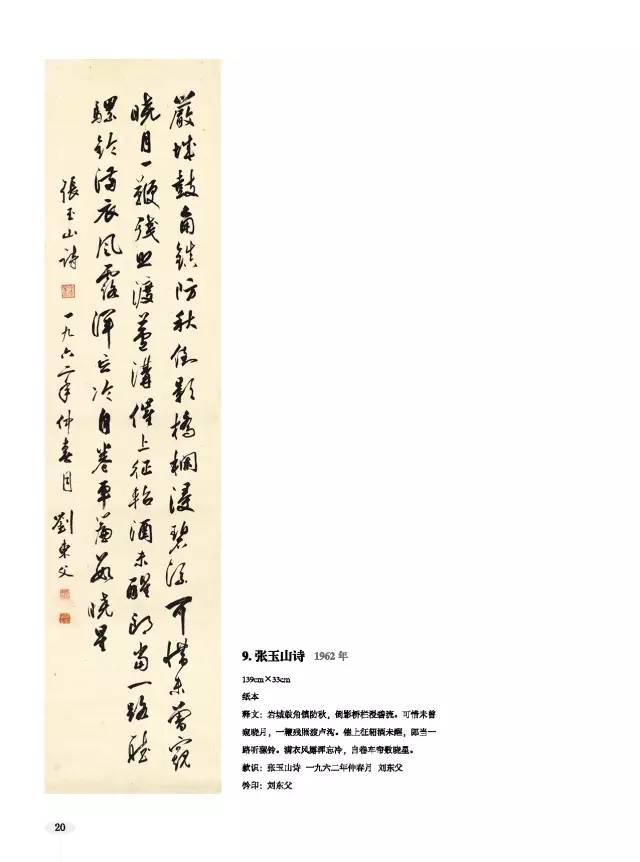 嚴城鼓角鎮防秋倒影橋欄浸碧流可惜未曾窺
曉月一鞭殘照渡蘆溝催上征軺酒未醒郎當一路聽
騾鈴滿衣風露渾忘冷自卷車簾數曉星
張玉山詩
一九六二年仲春月 劉東父
9. 张玉山诗 1962 年
139cm×33cm
纸本
释文：岩城鼓角镇防秋，倒影桥栏浸碧流。可惜未曾
窥晓月，一鞭残照渡卢沟。催上征轺酒未醒，郎当一
路听骡铃。满衣风露浑忘冷，自卷车帘数晓星。
款识：张玉山诗 一九六二年仲春月 刘东父
钤印：刘东父
20